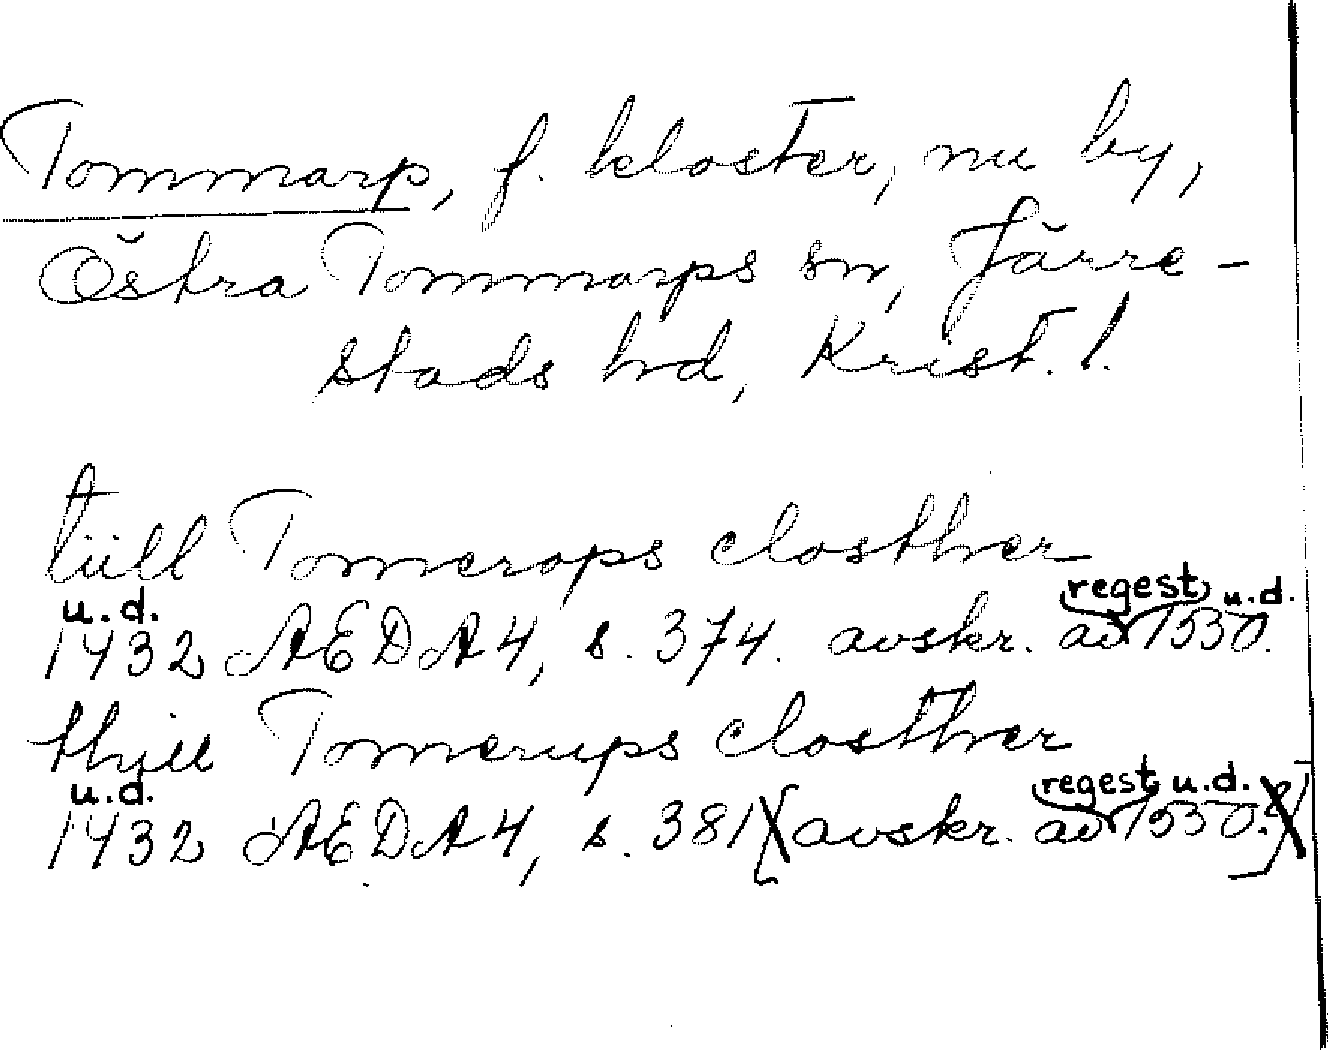 Tommarp, f. kloster, nu by,
Östra Tommarps sn, Järre-
stads hd, Krist. l.
tiill Tomerops closther
u.d. regest u.d.
1432 AEDA4, s. 374. avskr. av 1550.
thill Tomerups closther
u.d. regest u.d.
1432 AEDA4, s. 381 [avskr. av 1550.]